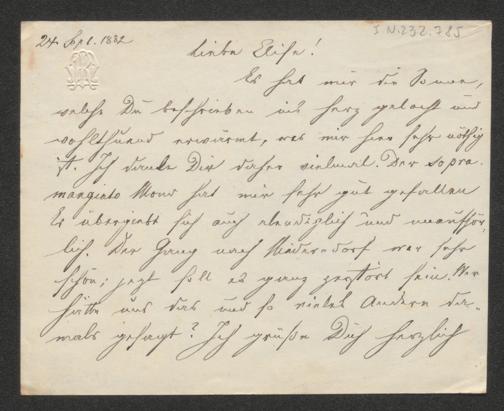 24 Sept. 1882
I.N.232.785
Liebe Elise!
Es hat mir die Sonne,
welche Du beschrieben ins Herz gelacht und
wohlthuend erwärmt, was mir hier sehr nöthig
ist. Ich danke Dir daher vielmal. Der sopra-
mangiato Mond hat mir sehr gut gefallen
Es übergiebt sich auch allendlich und unaufhör-
lich. Der Gang nach Niederndorf war sehr
schön; jezt soll es ganz zerstört sein. Wer
hätte uns das und so vieles Andere da-
mals gesagt? Ich grüße Dich herzlich